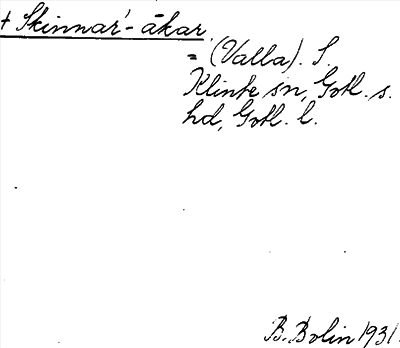 + Skinnar'-åkar,
= (Valla). S.
Klinte sn, Gotl. s.
hd, Gotl. l.
B. Bolin 1931.